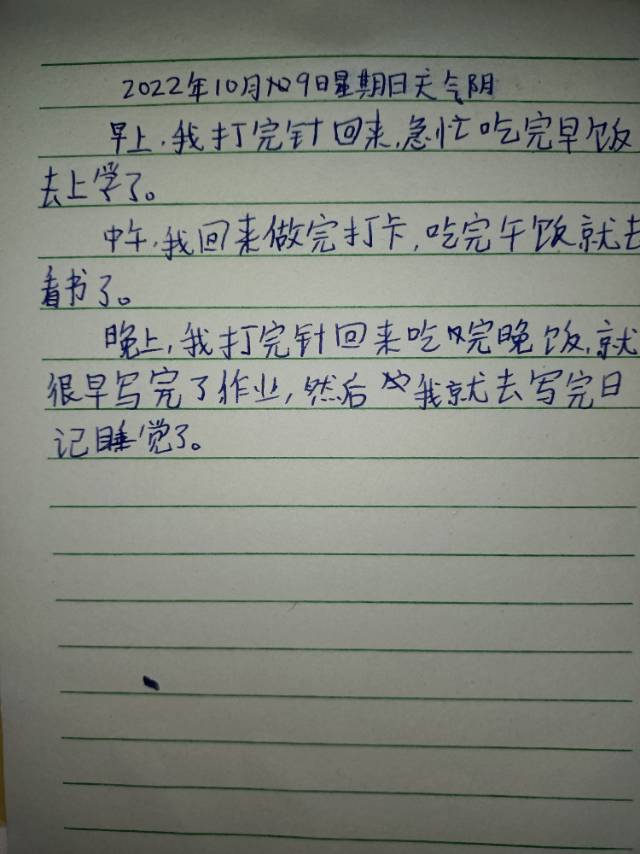 2022年10月9日星期日天气阴
早上，我打完针回来，急忙吃完早饭
去上学了。
中午，我回来做完打卡，吃完午饭就去
看书了。
晚上，我打完针回来吃完晚饭，就
很早写完了作业，然后我就去写完日
记睡觉了。